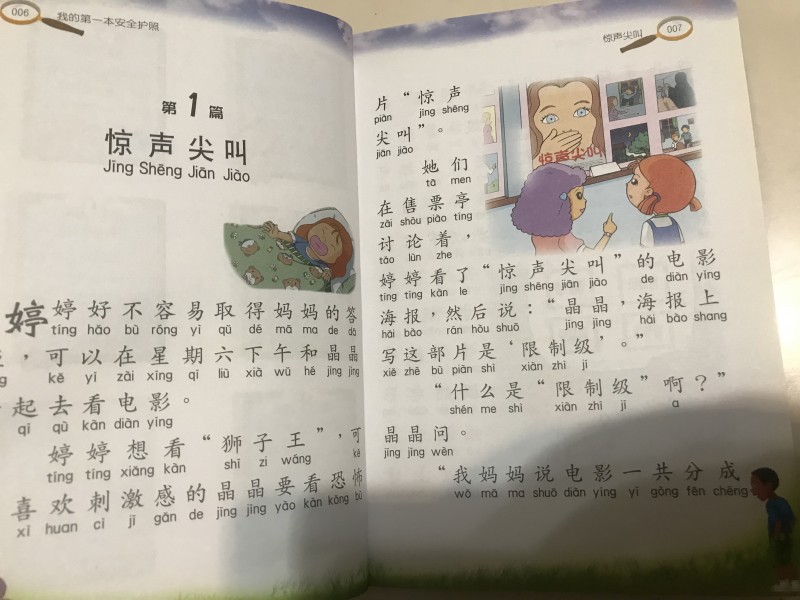 006
我的第一本安全护照
第1篇
惊声尖叫
Jīng Shēng Jiān Jiào
婷婷好不容易取得妈妈的答
tíng hǎo bù róng yì qǔ dé mā ma de dā
，可以在星期六下午和晶晶
kě yǐ zài xīng qī liù xià wǔ hé jīng jīng
起去看电影。
qǐ qù kàn diàn yǐng
婷婷想看“狮子王”，可
tíng tíng xiǎng kàn shī zi wáng kě
喜欢刺激感的晶晶要看恐怖
xǐ huan cì jī gǎn de jīng jīng yào kàn kǒng bù
惊声尖叫
007
片“惊声
piàn jīng shēng
尖叫”。
jiān jiào
她们
tā men
在售票亭
zài shòu piào tíng
讨论着，
tǎo lùn zhe
婷婷看了“惊声尖叫”的电影
tíng tíng kàn le jīng shēng jiān jiào de diàn yǐng
海报，然后说：“晶晶，海报上
hǎi bào rán hòu shuō jīng jīng hǎi bào shang
写这部片是‘限制级’。”
xiě zhè bù piàn shì xiàn zhì jí
“什么是“限制级”啊？”
shén me shì xiàn zhì jí a
晶晶问。
jīng jīng wèn
“我妈妈说电影一共分成
wǒ mā ma shuō diàn yǐng yí gòng fēn chéng
惊声尖叫